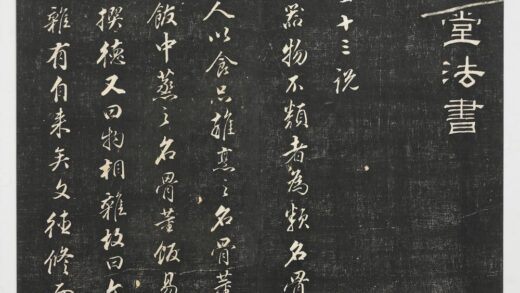 堂法書
十三説
器物不類者為類名骨
人以食品雜烹之名骨董
飯中蒸之名骨董飯易
撰德又曰物相雜故曰
雜有自来矣文德修而